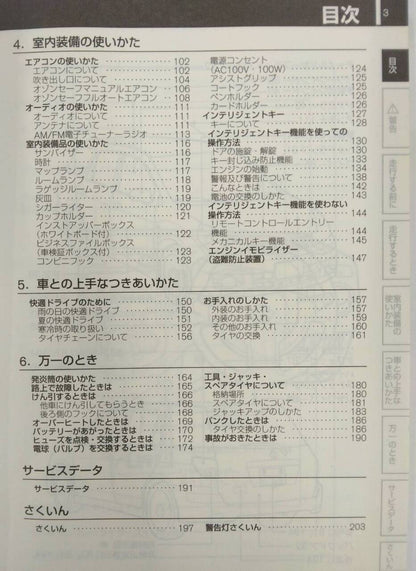 目次
3
4. 室内装備の使いかた
エアコンの使いかた 102
エアコンについて 102
吹き出し口について 104
オゾンセーフマニュアルエアコン 106
オゾンセーフフルオートエアコン 108
オーディオの使いかた 111
オーディオについて 111
アンテナについて 111
AM/FM電子チューナーラジオ 113
室内装備品の使いかた 116
サンバイザー 116
時計 117
マップランプ 117
ルームランプ 118
ラゲッジルームランプ 119
灰皿 119
シガーライター 120
カップホルダー 121
インストアッパーボックス
(ホワイトボード付) 122
ビジネスファイルボックス
(車検証ボックス付) 123
コンビニフック 123
電源コンセント
(AC100V・100W) 124
アシストグリップ 125
コートフック 125
ペンホルダー 126
カードホルダー 126
インテリジェントキー 127
キーについて 128
インテリジェントキー機能を使っての
操作方法 130
ドアの施錠・解錠 130
キー封じ込み防止機能 133
エンジンの始動 134
警報及び警告について 138
こんなときは 142
電池の交換のしかた 143
インテリジェントキー機能を使わない
操作方法 144
リモートコントロールエントリー
機能 144
メカニカルキー機能 145
エンジンイモビライザー
(盗難防止装置) 147
5. 車との上手なつきあいかた
快適ドライブのために 150
雨の日の快適ドライブ 150
夏の快適ドライブ 151
寒冷時の取り扱い 152
タイヤチェーンについて 156
お手入れのしかた 157
外装のお手入れ 157
内装のお手入れ 159
その他のお手入れ 160
タイヤの交換 161
6. 万一のとき
発炎筒の使いかた 164
路上で故障したときは 165
けん引するときは 166
他車にけん引してもらうとき 166
後ろ側のフックについて 168
オーバーヒートしたときは 169
バッテリーがあがったときは 170
ヒューズを点検・交換するときは 172
電球(バルブ)を交換するときは 174
工具・ジャッキ・
スペアタイヤについて 180
格納場所 180
スペアタイヤについて 181
ジャッキアップのしかた 183
パンクしたときは 186
タイヤ交換のしかた 186
事故がおきたときは 190
サービスデータ
サービスデータ 191
さくいん
さくいん 197
警告灯さくいん 203
目次
警告
走行する前に
走行するとき
室内装備の
使いかた
車との上手な
つきあいかた
万一のとき
サービスデータ
さくいん